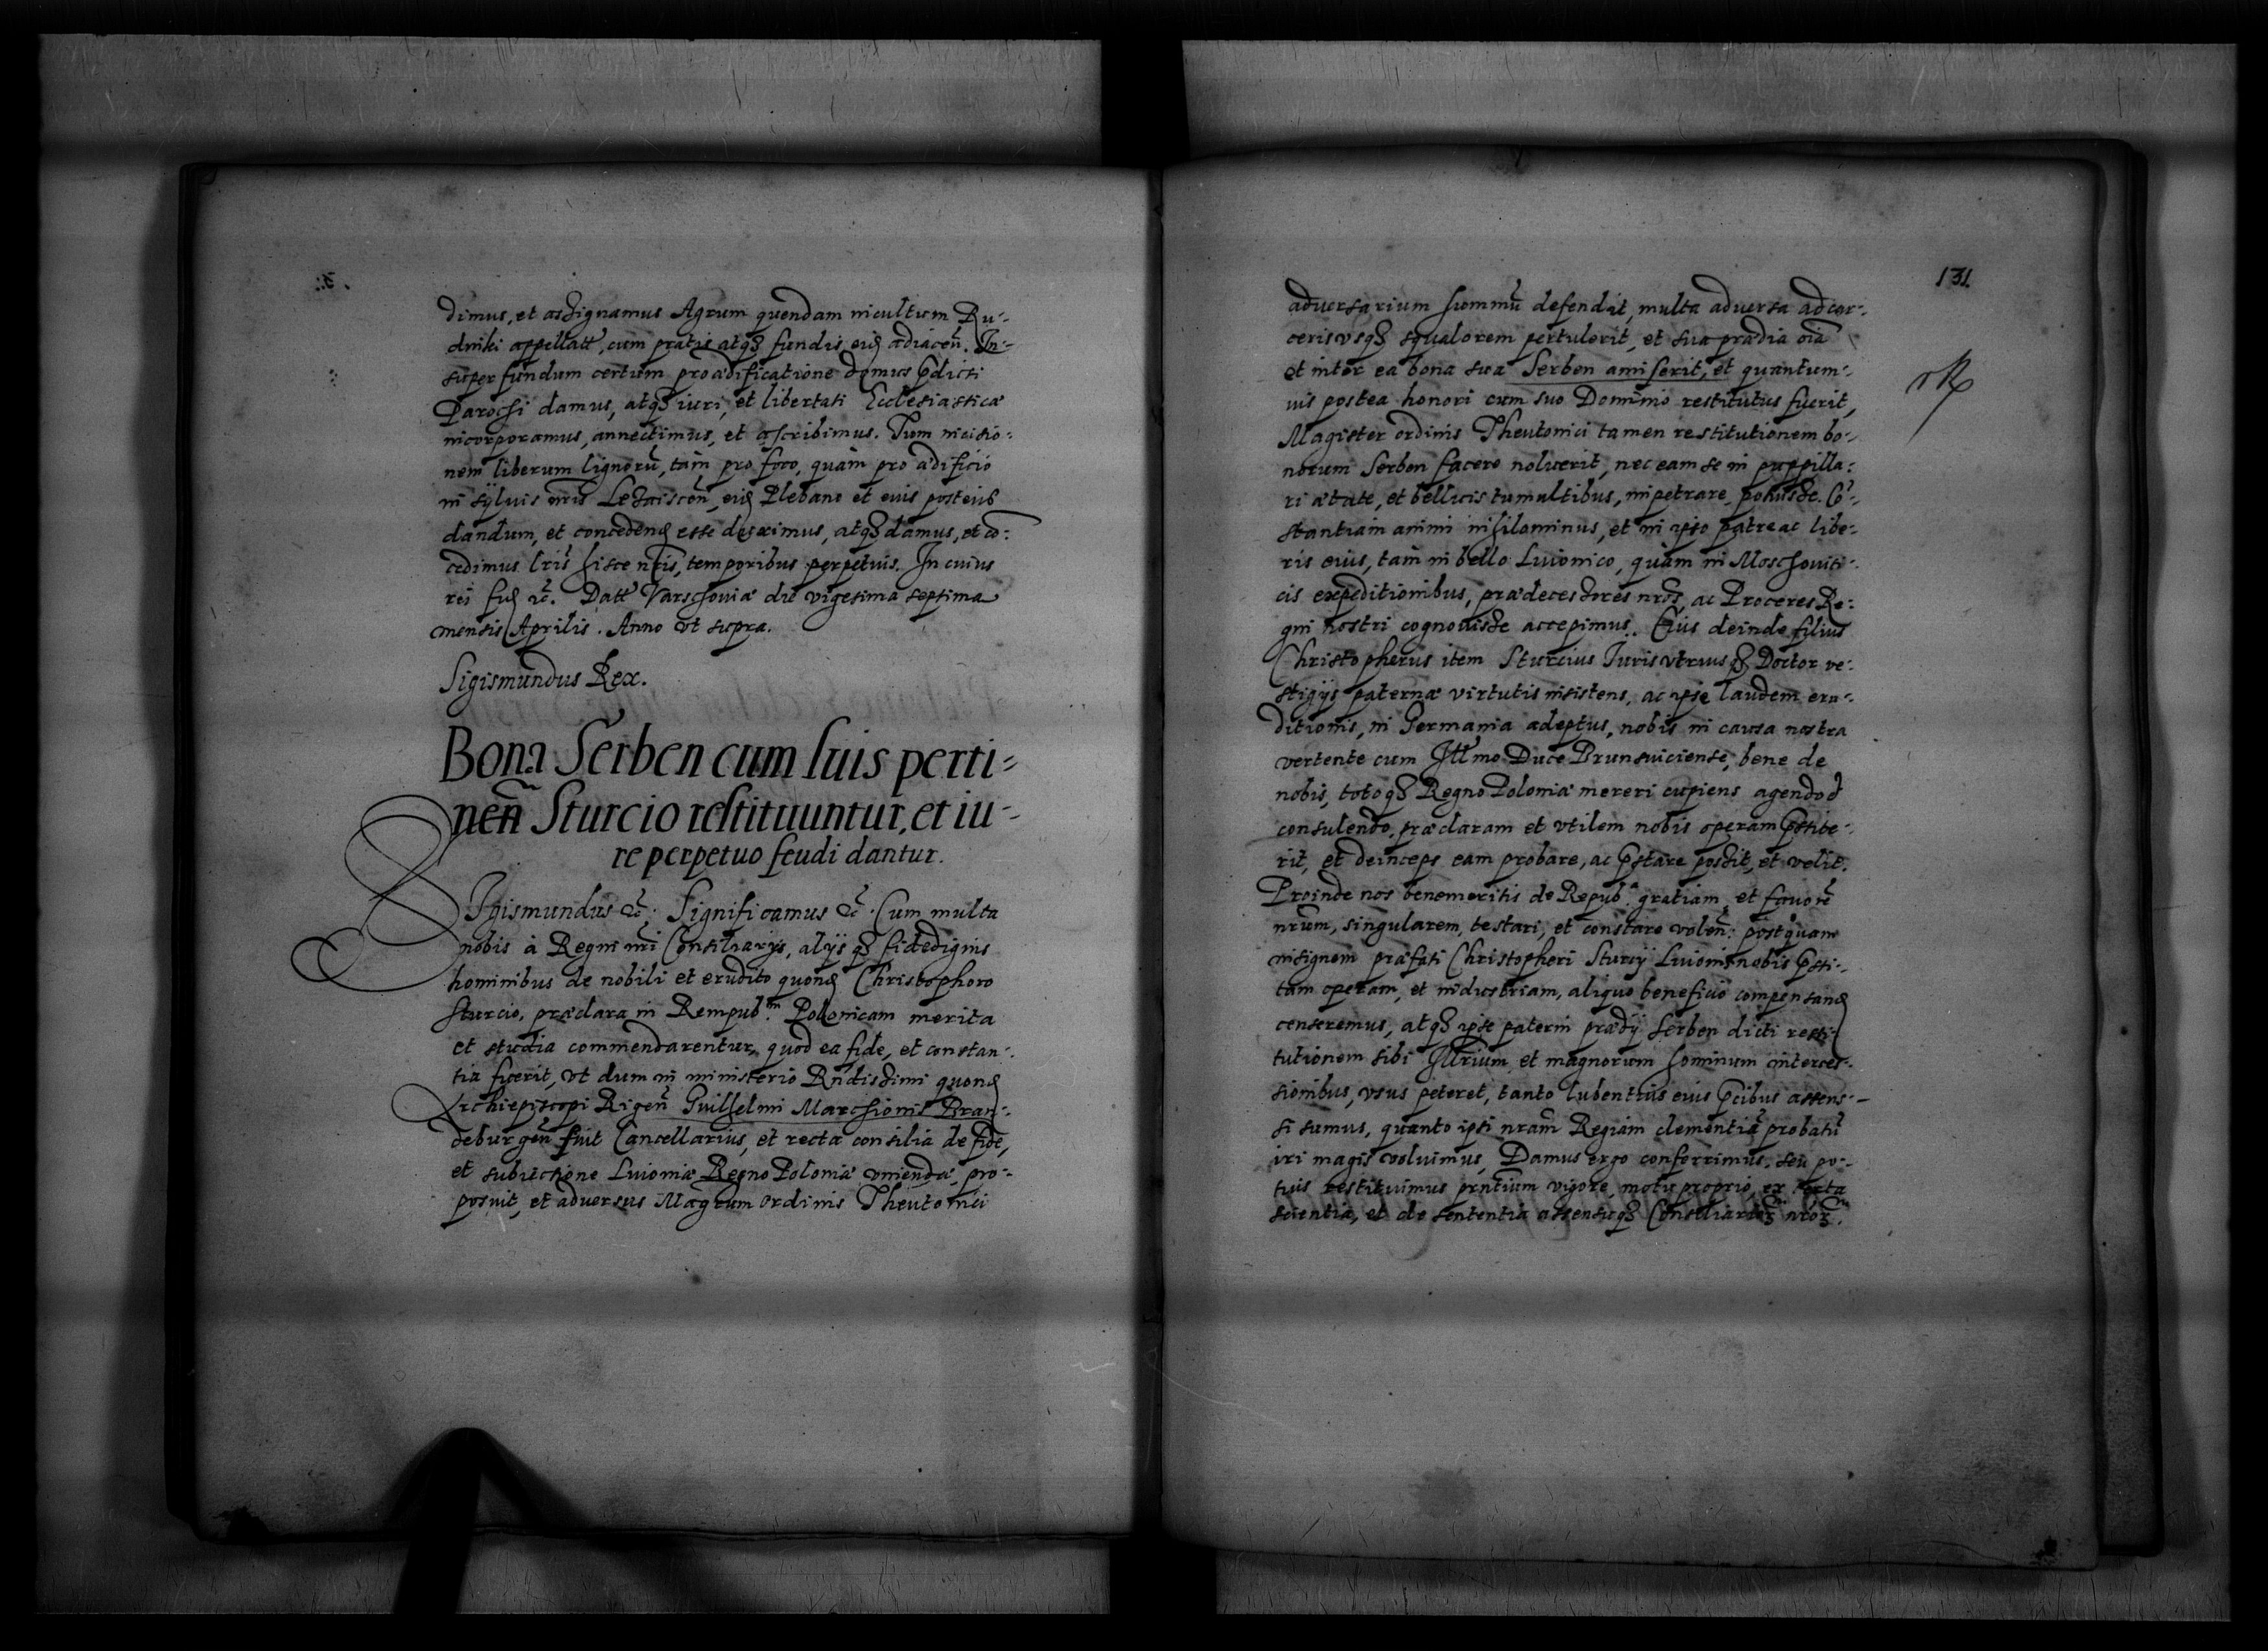 dimus, et assignamus Agrum quendam incultum Ru-
dniki appellatt, cum pratis atq3 fundis eid adiaceñ. In-
super fundum certum pro ædificatione domus pdicti
Parochi damus, atq3 iuri, et libertati Ecclesiasticæ
incorporamus, annectimus, et ascribimus. Tum incisio-
nem liberum lignorũ, tam pro foco, quàm pro ædificio
in sÿluis nris eid Plebano et euis
dandum, et concedend esse duximus, atq3 damus, et cõ-
cedimus lris hisce nris, temporibus perpetuis. In cuius
rei fid &c. Datt Varschouiæ die vigesima septima
mensis Aprilis. Anno vt supra.
Sigismundus Rex.
Bona Serben cum suis perti-
neñ Sturcio restituuntur, et iu-
re perpetuo feudi dantur.
SIgismundus &c: Significamus &c. Cum multa
nobis à Regni nri Consiliarijs, alijs q3 fidedignis
hominibus de nobili et erudito quond Christophoro
Sturcio, præclara in Rempub.m Polonicam merita
et studia commendarentur, quod ea fide, et constan-
tia fuerit, vt dum in ministerio Rndissimi quond
Archiepiscopi Rigeñ Guilhelmi Marchionis Bran-
deburgeñ fuit Cancellarius, et recta consilia de fide,
et subiectione Liuoniæ Regno Poloniæ vnienda, pro-
posuit, et aduersus Magrum Ordinis Theutonici
131.
aduersarium summũ defendit, multa aduersa ad car-
ceris vsq3 squalorem pertulerit, et sua prædia oia
et inter ea bona sua Serben amiserit, et quantum-
uis postea honori cum suo Domino restitutus fuerit,
Magister ordinis Theutonici tamen restitutionem bo-
norum Serben facere noluerit, nec eam se in puppilla-
ri ætate, et bellicis tumultibus, impetrare potuisse. Cõ-
stantiam animi nihilominus, et in ipso patre ac libe-
ris euis, tam in bello Liuonico, quàm in Moschouiti-
cis expeditionibus, prædecessores nros, ac Proceres Re-
gni nostri cognouisse accepimus. Eius deinde filius
Christopherus item Sturcius Iuris vtrius q3 Doctor ve-
stigijs paternæ virtutis insistens, ac ipse laudem eru-
ditionis, in Germania adeptus, nobis in causa nostra
vertente cum Illmo Duce Brunsuiciense, bene de
nobis, toto q3 Regno Poloniæ mereri cupiens agendo &
consulendo, præclaram et vtilem nobis operam pstite-
rit, et deinceps eam probare, ac pstare possit, et velit.
Proinde nos benemeritis de Repub.a gratiam, et fauorẽ
nrum, singularem, testari, et constare voleñ: postquam
insignem præfati Christopheri Sturcij Liuonis nobis psti-
tam operam, et industriam, aliquo beneficio compensand
censeremus, atq3 ipse paterni prædij Serben dicti resti-
tutionem sibi Illrium et magnorum hominum interces-
sionibus, vsus peteret, tanto lubentius eius pcibus assens-
si sumus, quanto ipsi nram Regiam clementiã probatũ
iri magis voluimus, Damus ergo conferrimus, seu po-
tuis restituimus prntium vigore, motu proprio, ex certa
scientia, et de sententia assensuq3 Consiliarior3 nror3.